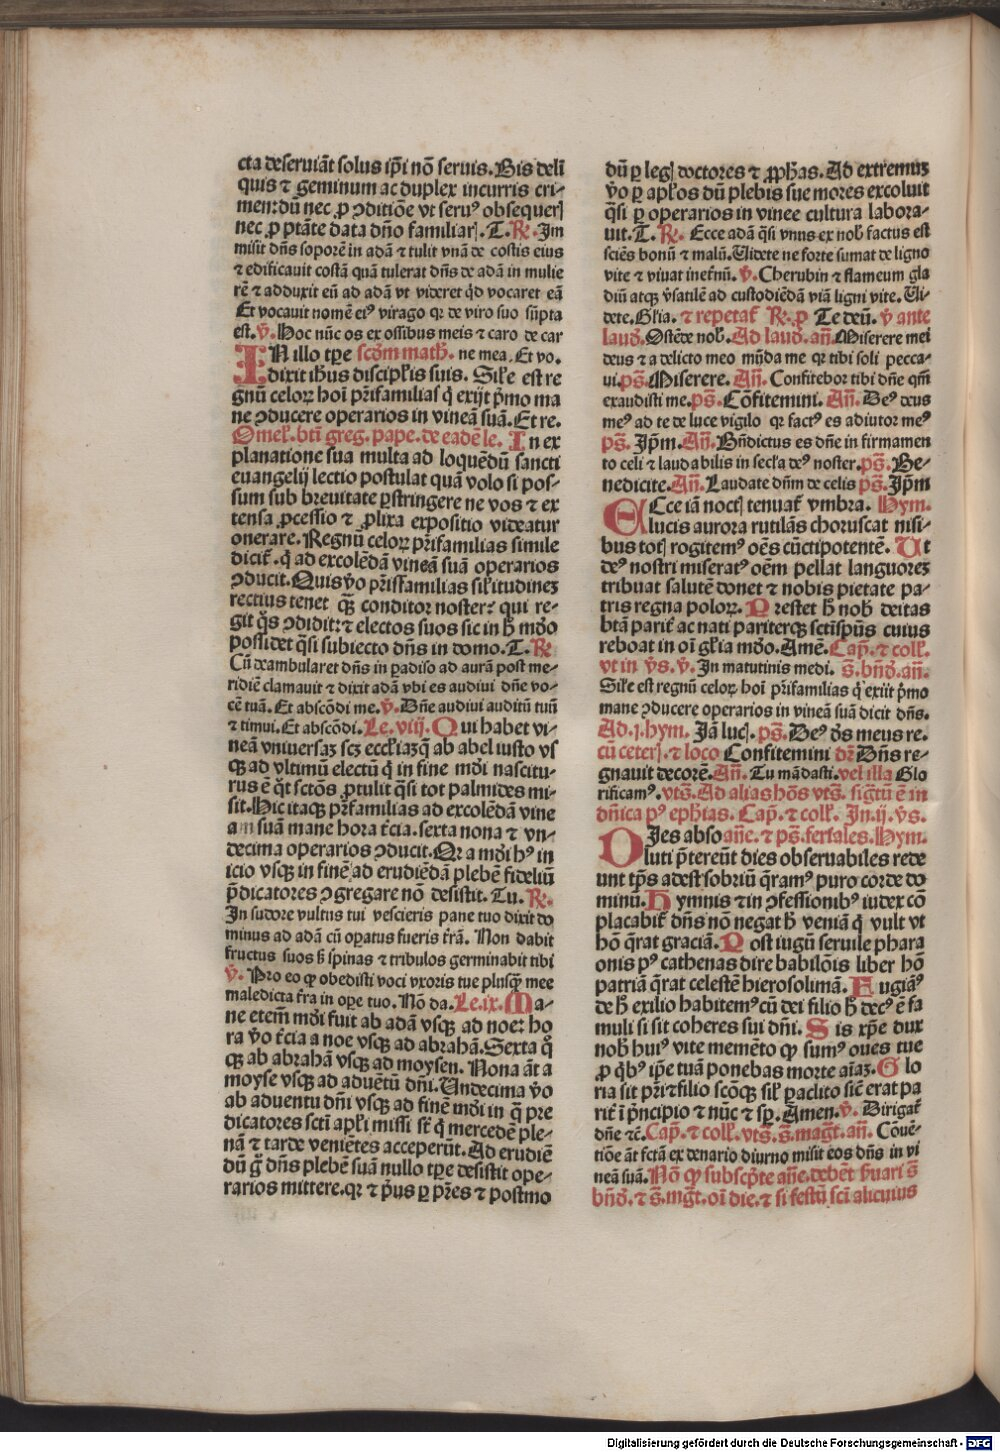 cta deseruiãt solus ip̃i nõ seruis. Bis deli
quis ⁊ geminum ac duplex incurris cri⸗
men: dũ nec ꝓ ꝯditiõe vt seruꝰ obsequerꝭ
nec ꝓ ptãte data dño familiarꝭ. T. R̃. Im
misit dñs soporẽ in adã ⁊ tulit vnã de costis eius
⁊ edificauit costã quã tulerat dñs de adã in mulie
rẽ ⁊ adduxit eũ ad adã vt videret qͥd vocaret eã
Et vocauit nomẽ eiꝰ virago qꝛ de viro suo sũpta
est. ṽ. Hoc nũc os ex ossibus meis ⁊ caro de car
IN illo tp̃e scđm math̃. ne mea. Et vo.
dixit ih̃us discipl̃is suis. Sil̃e est re
gnũ celoꝝ hoĩ pr̃ifamilias qͥ exijt p̃mo ma
ne ꝯducere operarios in vineã suã. Et re.
Omel̃. bt̃i greg. pape. de eadẽ le. In ex
planatione sua multa ad loquẽdũ sancti
euangelij lectio postulat quã volo si pos⸗
sum sub breuitate ꝑstringere ne vos ⁊ ex
tensa ꝓcessio ⁊ ꝓlixa expositio videatur
onerare. Regnũ celoꝝ pr̃ifamilias simile
dicit̃. qͥ ad excolẽdã vineã suã operarios
ꝯducit. Quis ṽo pr̃isfamilias sil̃itudineȝ
rectius tenet qͣȝ conditor noster? qui re⸗
git qͦs ꝯdidit: ⁊ electos suos sic in h̃ mũdo
possidet qͣsi subiecto dñs in domo. T. R̃.
Cũ deambularet dñs in ꝑadiso ad aurã post me⸗
ridiẽ clamauit ⁊ dixit adã vbi es audiui dñe vo⸗
cẽ tuã. Et abscõdi me. ṽ. Dñe audiui auditũ tuũ
⁊ timui. Et abscõdi. Le. viij. Qui habet vi⸗
neã vniuersaȝ scȝ eccl̃iaȝ q̃ ab abel iusto vs
qꝫ ad vltimũ electũ qͥ in fine mũdi nascitu⸗
rus ẽ qͦt sctõs ꝓtulit qͣsi tot palmides mi⸗
sit. Hic itaqꝫ pr̃familias ad excolẽdã vine
am suã mane hora t̃cia. sexta nona ⁊ vn⸗
decima operarios ꝯducit. Qꝛ a mũdi hꝰ in
icio vsqꝫ in finẽ ad erudiẽdã plebẽ fideliũ
p̃dicatores ꝯgregare nõ desistit. Tu. R̃.
In sudore vultus tui vescieris pane tuo dixit do
minus ad adã cũ oꝑatus fueris t̃rã. Non dabit
fructus suos s̃ spinas ⁊ tribulos germinabit tibi
ṽ. Pro eo qꝙ obedisti voci vxoris tue plusqͣȝ mee
maledicta t̃ra in oꝑe tuo. Nõ da. Le. ix. Ma⸗
ne etem̃ mũdi fuit ab adã vsqꝫ ad noe: ho
ra ṽo t̃cia a noe vsqꝫ ad abrahã. Sexta q̃
qꝫ ab abrahã vsqꝫ ad moysen. Nona ãt a
moyse vsqꝫ ad aduẽtũ dñi. Vndecima ṽo
ab aduentu dñi vsqꝫ ad finẽ mũdi in q̃ pre
dicatores sctĩ apl̃i missi sũt qͥ mercedẽ ple⸗
nã ⁊ tarde veniẽtes acceperũt. Ad erudiẽ
dũ g̃ dñs plebẽ suã nullo tp̃e desistit ope⸗
rarios mittere. qꝛ ⁊ p̃us ꝑ pr̃es ⁊ postmo
dũ ꝑ legꝭ doctores ⁊ ꝓph̃as. Ad extremuȝ
ṽo ꝑ apl̃os dũ plebis sue mores excoluit
qͣsi ꝑ operarios in vinee cultura labora⸗
uit. T. R̃. Ecce adã qͣsi vnus ex nob̃ factus est
sciẽs bonũ ⁊ malũ. Videte ne forte sumat de ligno
vite ⁊ viuat inet̃nũ. ṽ. Cherubin ⁊ flameum gla
diũ atqꝫ ṽsatilẽ ad custodiẽdã viã ligni vite. Vi⸗
dete. Gl̃ia. ⁊ repetat̃ R̃. ꝓ Te deũ. ṽ ante
laud̃. Ostẽde nob̃. Ad laud̃. añ. Miserere mei
deus ⁊ a delicto meo mũda me qꝛ tibi soli pecca⸗
ui. pš. Miserere. Añ. Confitebor tibi dñe qm̃
exaudisti me. pš. Cõfitemini. Añ. Deꝰ deus
meꝰ ad te de luce vigilo qꝛ factꝰ es adiutor meꝰ
pš. Ip̃m. Añ. Bñdictus es dñe in firmamen
to celi ⁊ laudabilis in secl̃a deꝰ noster. pš. Be⸗
nedicite. Añ. Laudate dñm de celis pš. Ip̃m
ECce iã noctꝭ tenuat̃ vmbra. Hym.
lucis aurora rutilãs choruscat nisi⸗
bus totꝭ rogitemꝰ oẽs cũctipotentẽ. Ut
deꝰ nostri miseratꝰ oẽm pellat languoreȝ
tribuat salutẽ donet ⁊ nobis pietate pa⸗
tris regna poloꝝ. Prestet h̃ nob̃ deitas
btã parit̃ ac nati pariterqꝫ sctĩ sp̃us cuius
reboat in oĩ gl̃ia mũdo. Amẽ. Cap̃. ⁊ coll̃.
vt in ṽs. ṽ. In matutinis medi. s̃. bñd̃. añ.
Sil̃e est regnũ celoꝝ hoĩ pr̃ifamilias qͥ exijt p̃mo
mane ꝯducere operarios in vineã suã dicit dñs.
Ad. j. hym. Iã lucꝭ. pš. Deꝰ d̃s meus re.
cũ ceterꝭ. ⁊ loco Confitemini dr̃ Dñs re⸗
gnauit decorẽ. Añ. Tu mãdasti. vel illa Glo
rificamꝰ. vt š. Ad alias hõs vt š. sigt̃ũ ẽ in
dñica pꝰ eph̃ias. Cap̃. ⁊ coll̃. In. ij. ṽs.
DIes abso añe. ⁊ pš. feriales. Hym.
luti p̃tereũt dies obseruabiles rede
unt tp̃s adest sobriũ qͣramꝰ puro corde do
minũ. Hymnis ⁊ in ꝯfessionibꝰ iudex cõ
placabit̃ dñs nõ negat h̃ veniã qͥ vult vt
hõ q̃rat graciã. Post iugũ seruile phara
onis pꝰ cathenas dire babilõis liber hõ
patriã q̃rat celestẽ hierosolimã. Fugiãꝰ
de h̃ exilio habitemꝰ cũ dei filio h̃ decꝰ ẽ fa
muli si sit coheres sui dñi. Sis xp̃e dux
nob̃ huiꝰ vite memẽto qꝙ sumꝰ oues tue
ꝓ qͥbꝰ ip̃e tuã ponebas morte aĩaȝ. Glo
ria sit pr̃i ⁊ filio scõqꝫ sil̃ ꝑaclito sic̃ erat pa
rit̃ ĩ p̃ncipio ⁊ nũc ⁊ sꝑ. Amen. ṽ. Dirigat̃
dñe ⁊c̃. Cap̃. ⁊ coll̃. vt š. s̃. mag̃t. añ. Cõuẽ⸗
tiõe ãt fctã ex denario diurno misit eos dñs in vi
neã suã. Nõ qꝙ subscp̃te añe. debẽt s̃uari s̃
bñd̃. ⁊ s̃. mg̃t. oĩ die. ⁊ si festũ scĩ alicuius
Digitalisierung gefördert durch die Deutsche Forschungsgemeinschaft - DFG